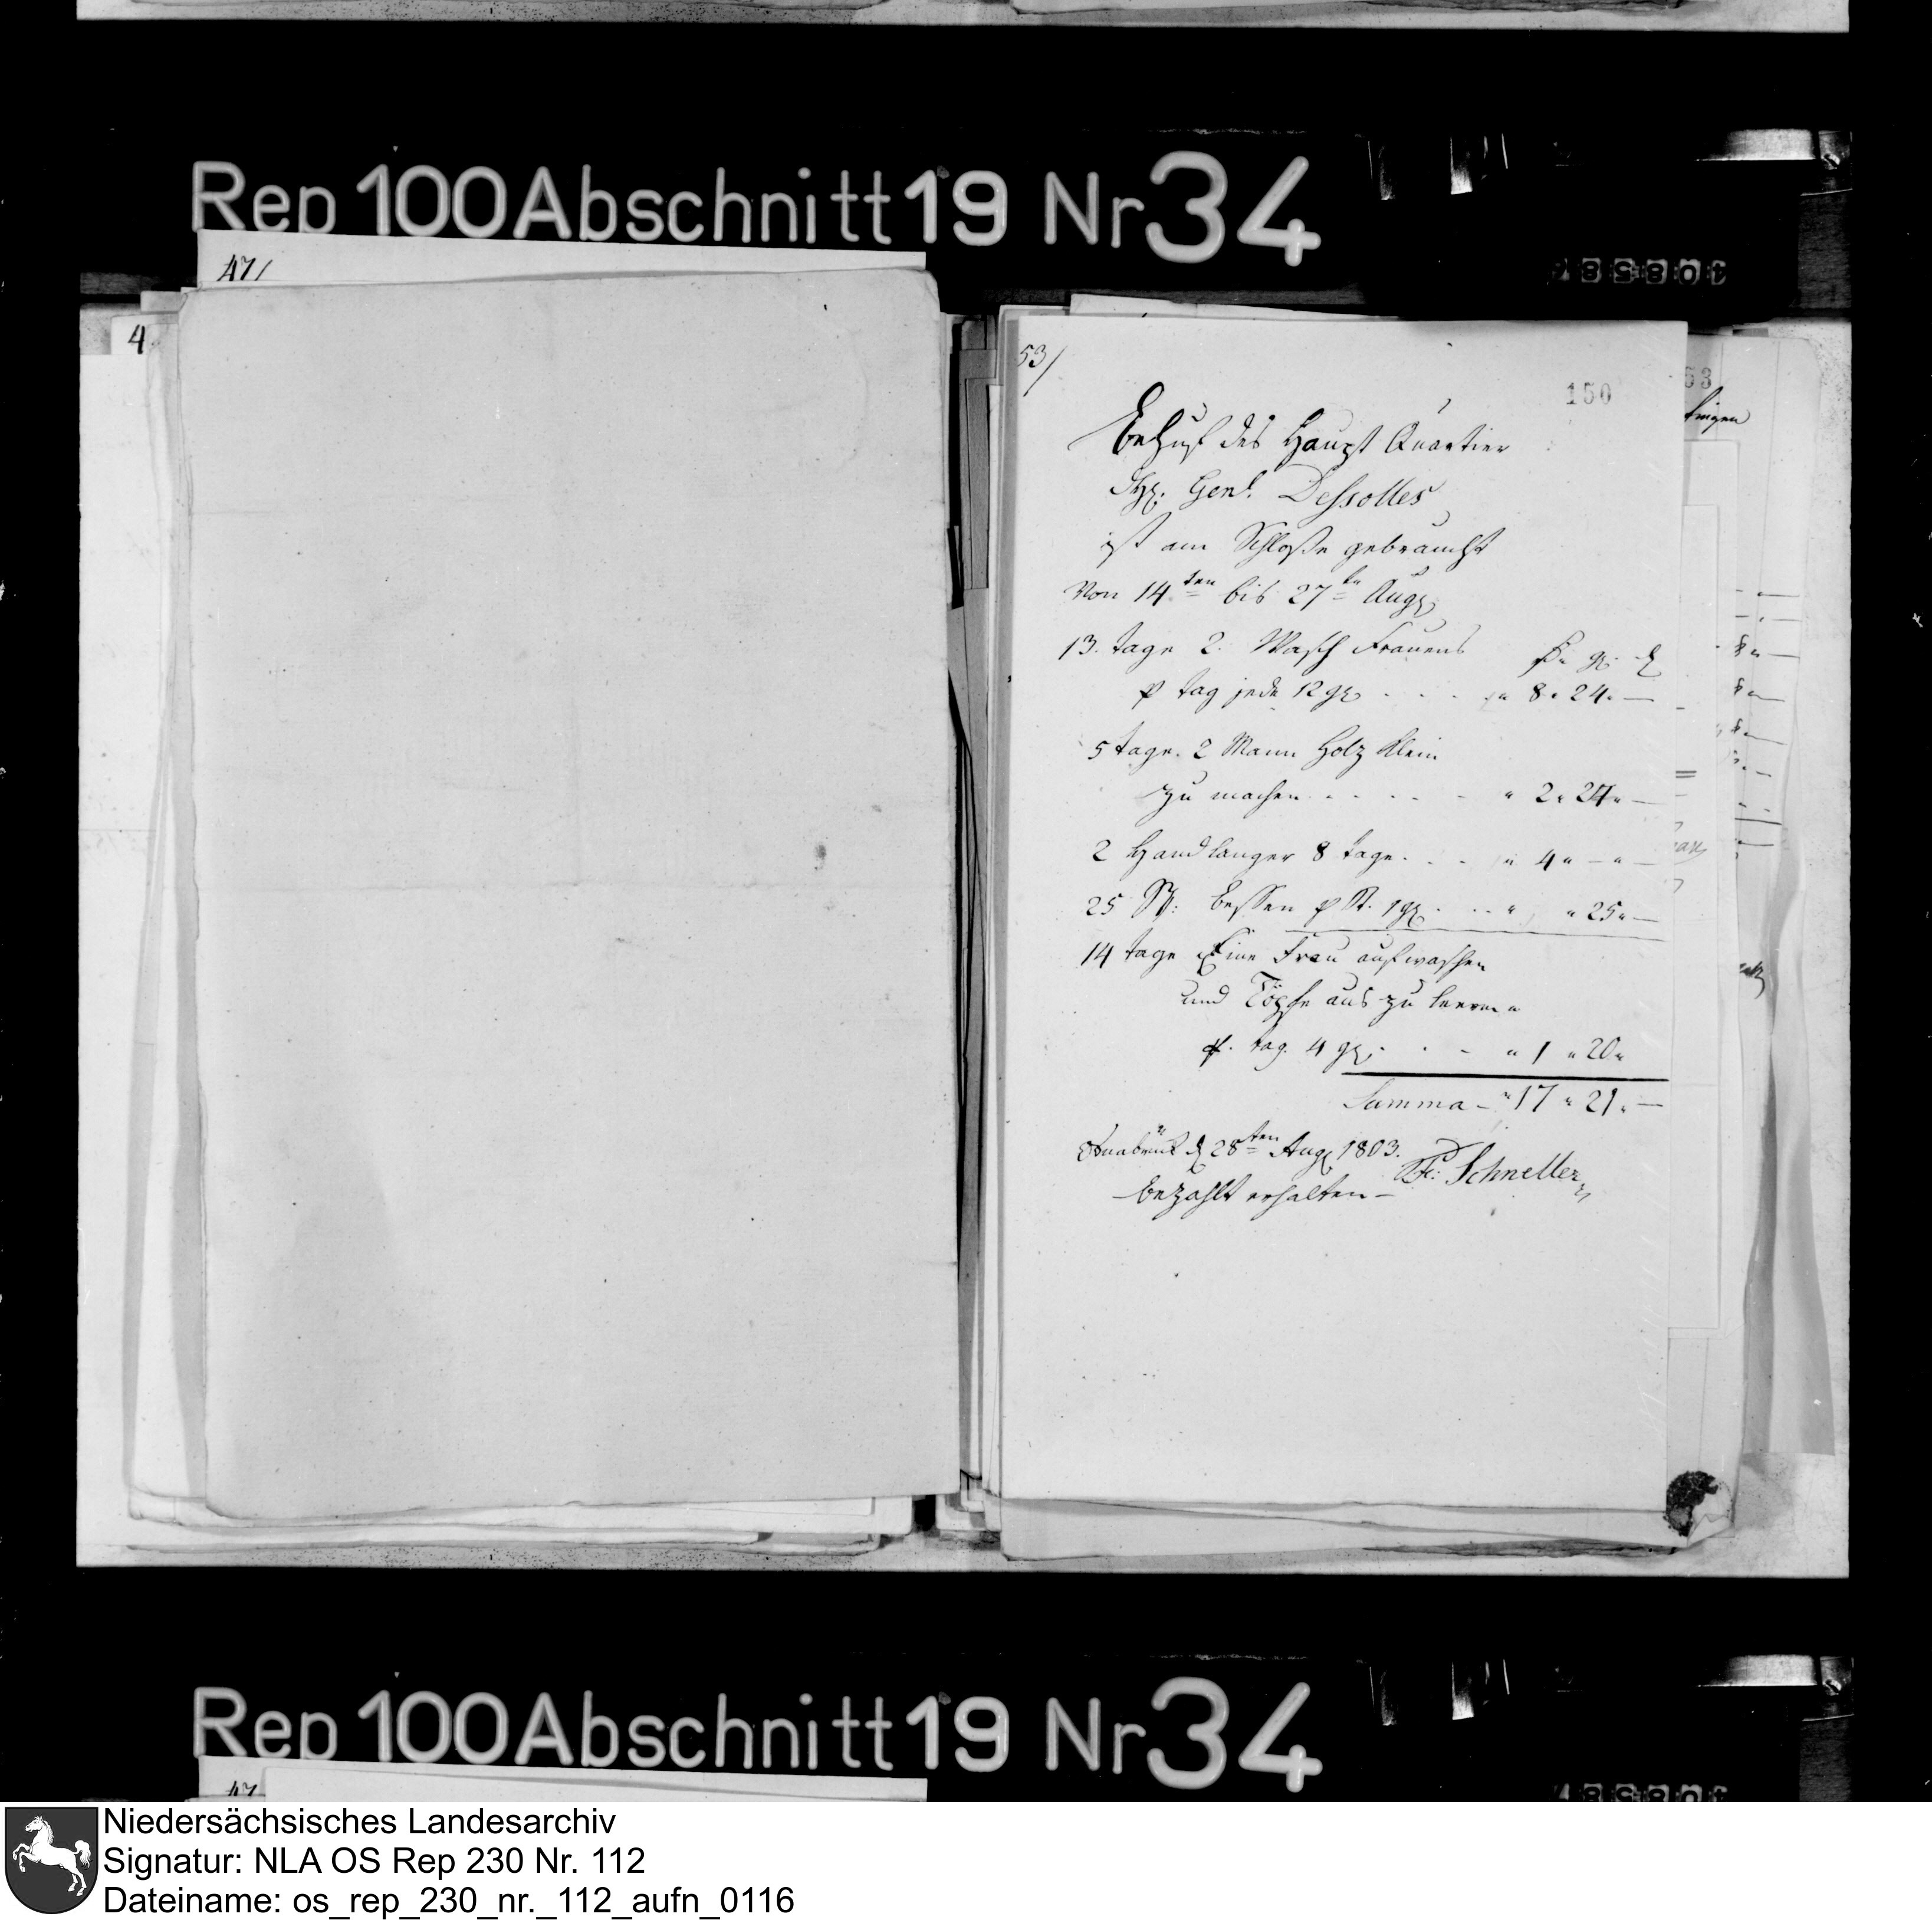 Rep 100 Abschnitt 19 Nr 34
408587
47/
4
53/
150
53
Behuf des Haupt Quartier
Genl. Dessolles
ist am Schloße gebraucht
Von 14ten bis 27te Aug
13. tage 2. Wasch Frauens
p tag jede 12 gl . . . . " 8 " 24 " —
5 tage. 2 Mann Holz klein
zu machen - . . . - " 2 " 24 " —
2 Handlanger 8 tage . . . " 4 " — " —
25 St: Bessen p St. 1 gl . . . " " 25 " —
14 tage Eine Frau aufwaschen
und Töpfe aus zu leeren "
p. tag. 4 gl . . - " 1 " 20 "
Summa - " 17 " 21 " —
Osnabrück d 28ten Aug 1803.
bezahlt erhalten — Fr: Schneller
Rep 100 Abschnitt 19 Nr 34
47
408587
Niedersächsisches Landesarchiv
Signatur: NLA OS Rep 230 Nr. 112
Dateiname: os_rep_230_nr._112_aufn_0116